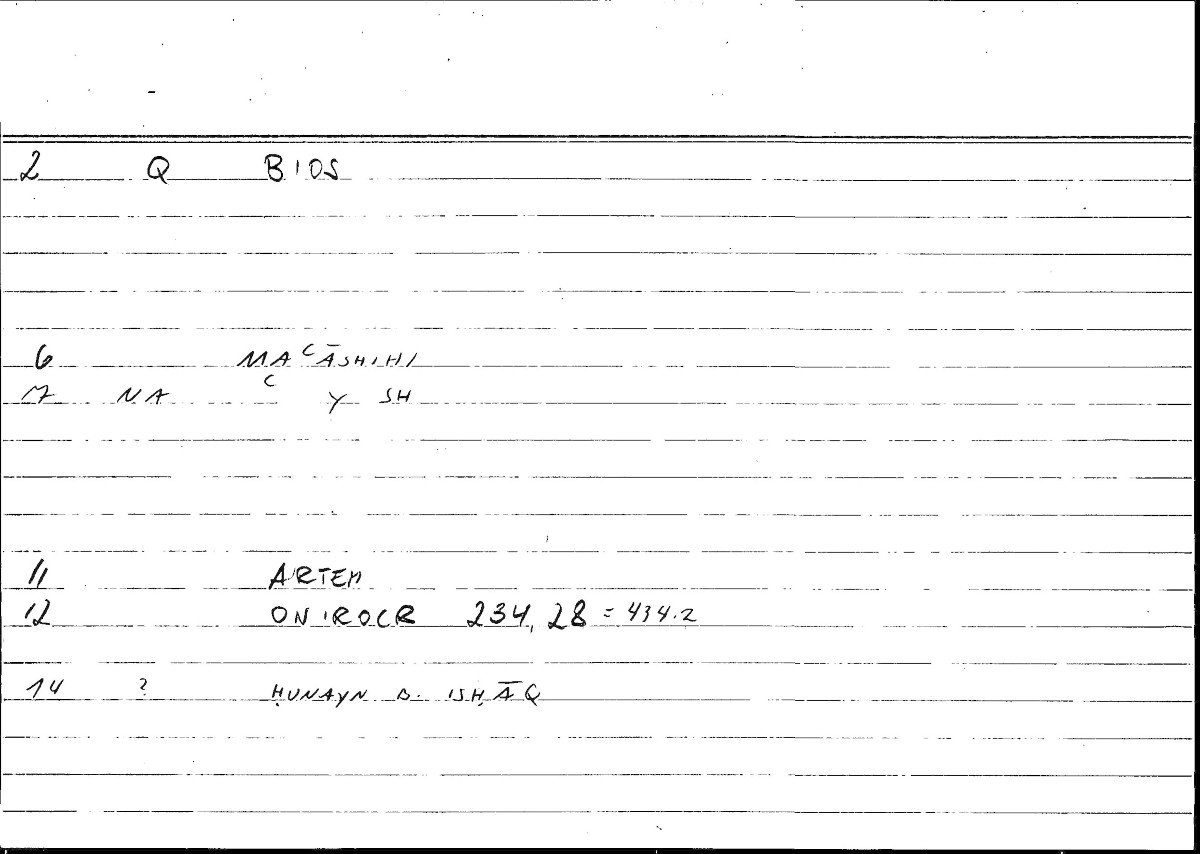 2 Q BIOS
6 MAʿĀSHIHI
7 NA ʿ Y SH
11 ARTEM
12 ONIROCR 234, 28 = 434.2
14 ? ḤUNAYN B. ISḤĀQ